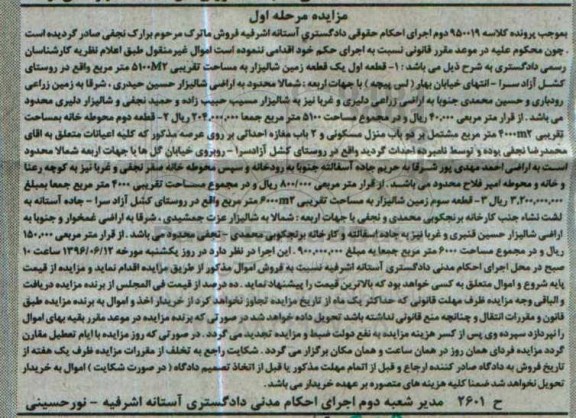 مزایده مرحله اول
بموجب پرونده کلاسه ۹۵۰۰۱۹ دوم اجرای احکام حقوقی دادگستری آستانه اشرفیه فروش ماترک مرحوم برارک نجفی صادر گردیده است
. چون محکوم علیه در موعد مقرر قانونی نسبت به اجرای حکم خود اقدامی ننموده است اموال غیرمنقول طبق اعلام نظریه کارشناسان
رسمی دادگستری به شرح ذیل می باشد : ۱- قطعه اول یک قطعه زمین شالیزار به مساحت تقریبی ۵۱۰۰M2 متر مربع واقع در روستای
کشل آزاد سرا - انتهای خیابان بهار ( لس پیجه ) با جهات اربعه : شمالا محدود به اراضی شالیزار حسین حیدری . شرقا به زمین زراعی
رودباری و حسین محمدی جنوبا به اراضی زراعی دلیری و غربا نیز به شالیزار مسیب حبیب زاده و حمید نجفی و شالیزار دلیری محدود
می باشد . از قرار متر مربعی ۴۰.۰۰۰ ریال و در مجموع مساحت ۵۱۰۰ متر مربع جمعا ۲۰۴.۰۰۰.۰۰۰ ریال ۲- قطعه دوم محوطه خانه بمساحت
تقریبی ۴۰۰۰m2 متر مربع مشتمل بر دو باب منزل مسکونی و ۲ باب مغازه احداثی بر روی عرصه مذکور که کلیه اعیانات متعلق به آقای
محمدرضا نجفی بوده و توسط نامبرده احداث گردید واقع در روستای کشل آزادسرا - روبروی خیابان گل ها با جهات اربعه شمالا محدود
است به اراضی احمد مهدی پور شرقا به حریم جاده آسفالته جنوبا به رودخانه و سپس محوطه خانه صفر نجفی و غربا نیز به کوچه رعنا
و خانه و محوطه امیر فلاح محدود می باشد . از قرار متر مربعی ۸۰۰/۰۰۰ ریال و در مجموع مساحت تقریبی ۴۰۰۰ متر مربع جمعا بمبلغ
۳.۲۰۰.۰۰۰.۰۰۰ ریال ۳- قطعه سوم زمین شالیزار به مساحت تقریبی ۶۰۰۰m2 متر مربع واقع در روستای کشل آزاد سرا - جاده آستانه به
لشت نشاء جنب کارخانه برنجکوبی محمدی و نجفی با جهات اربعه : شمالا به شالیزار عزت جمشیدی . شرقا به اراضی غمخوار و جنوبا به
اراضی شالیزار حسین قنبری و غربا نیز به جاده آسفالته و کارخانه برنجکوبی محمدی - نجفی محدود می باشد . از قرار متر مربعی ۱۵۰.۰۰۰
ریال و در مجموع مساحت ۶۰۰۰ متر مربع جمعا به مبلغ ۹۰۰.۰۰۰.۰۰۰ . این اجرا در نظر دارد در روز یکشنبه مورخه ۱۳۹۶/۰۶/۱۲ ساعت ۱۰
صبح در محل اجرای احکام مدنی دادگستری آستانه اشرفیه نسبت به فروش اموال مذکور از طریق مزایده اقدام نماید و مزایده از قیمت
پایه شروع و اموال متعلق به کسی خواهد بود که بالاترین قیمت را پیشنهاد نماید . ده درصد از قیمت فی المجلس از برنده مزایده دریافت
و الباقی وجه مزایده ظرف مهلت قانونی که حداکثر یک ماه از تاریخ مزایده تجاوز نخواهد کرد از خریدار اخذ و اموال به برنده مزایده طبق
قانون و مقررات انتقال و چنانچه منع قانونی نداشته باشد تحویل داده خواهد شد در صورتی که برنده مزایده در موعد مقرر بقیه بهای اموال
را نپردازد سپرده وی پس از کسر هزینه مزایده به نفع دولت ضبط و مزایده تجدید می گردد . در صورتی که روز مزایده با ایام تعطیل مقارن
گردد مزایده فردای همان روز در همان ساعت و همان مکان برگزار می گردد . شکایت راجع به تخلف از مقررات مزایده ظرف یک هفته از
تاریخ فروش به دادگاه صادر کننده ارجاع و قبل از اتمام مهلت مذکور یا قبل از اتخاذ تصمیم دادگاه ( در صورت شکایت ) اموال به خریدار
تحویل نخواهد شد ضمنا کلیه هزینه های متصوره بر عهده خریدار می باشد .
ح ۲۶۰۱ مدیر شعبه دوم اجرای احکام مدنی دادگستری آستانه اشرفیه - نورحسینی